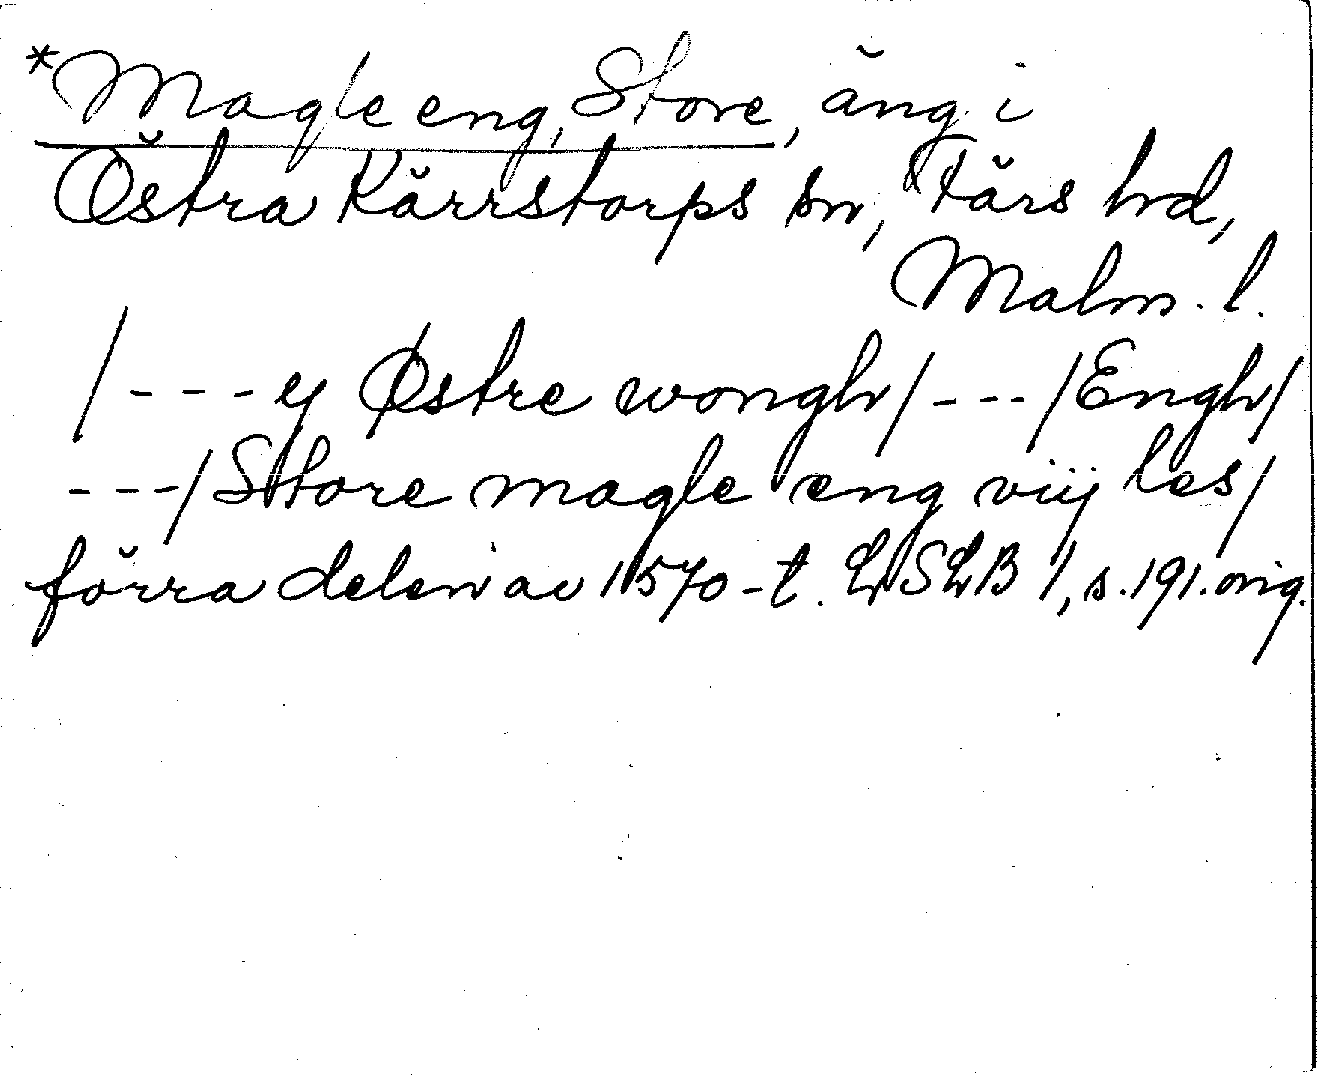 *Magle eng, Store, äng i
Östra Kärrstorps sn, Färs hd,
Malm. l.
/---y Østre wongh/---/Engh/
---/Store magle eng viij les/
förra delen av 1570-t. LSLB 1, s. 191. orig.